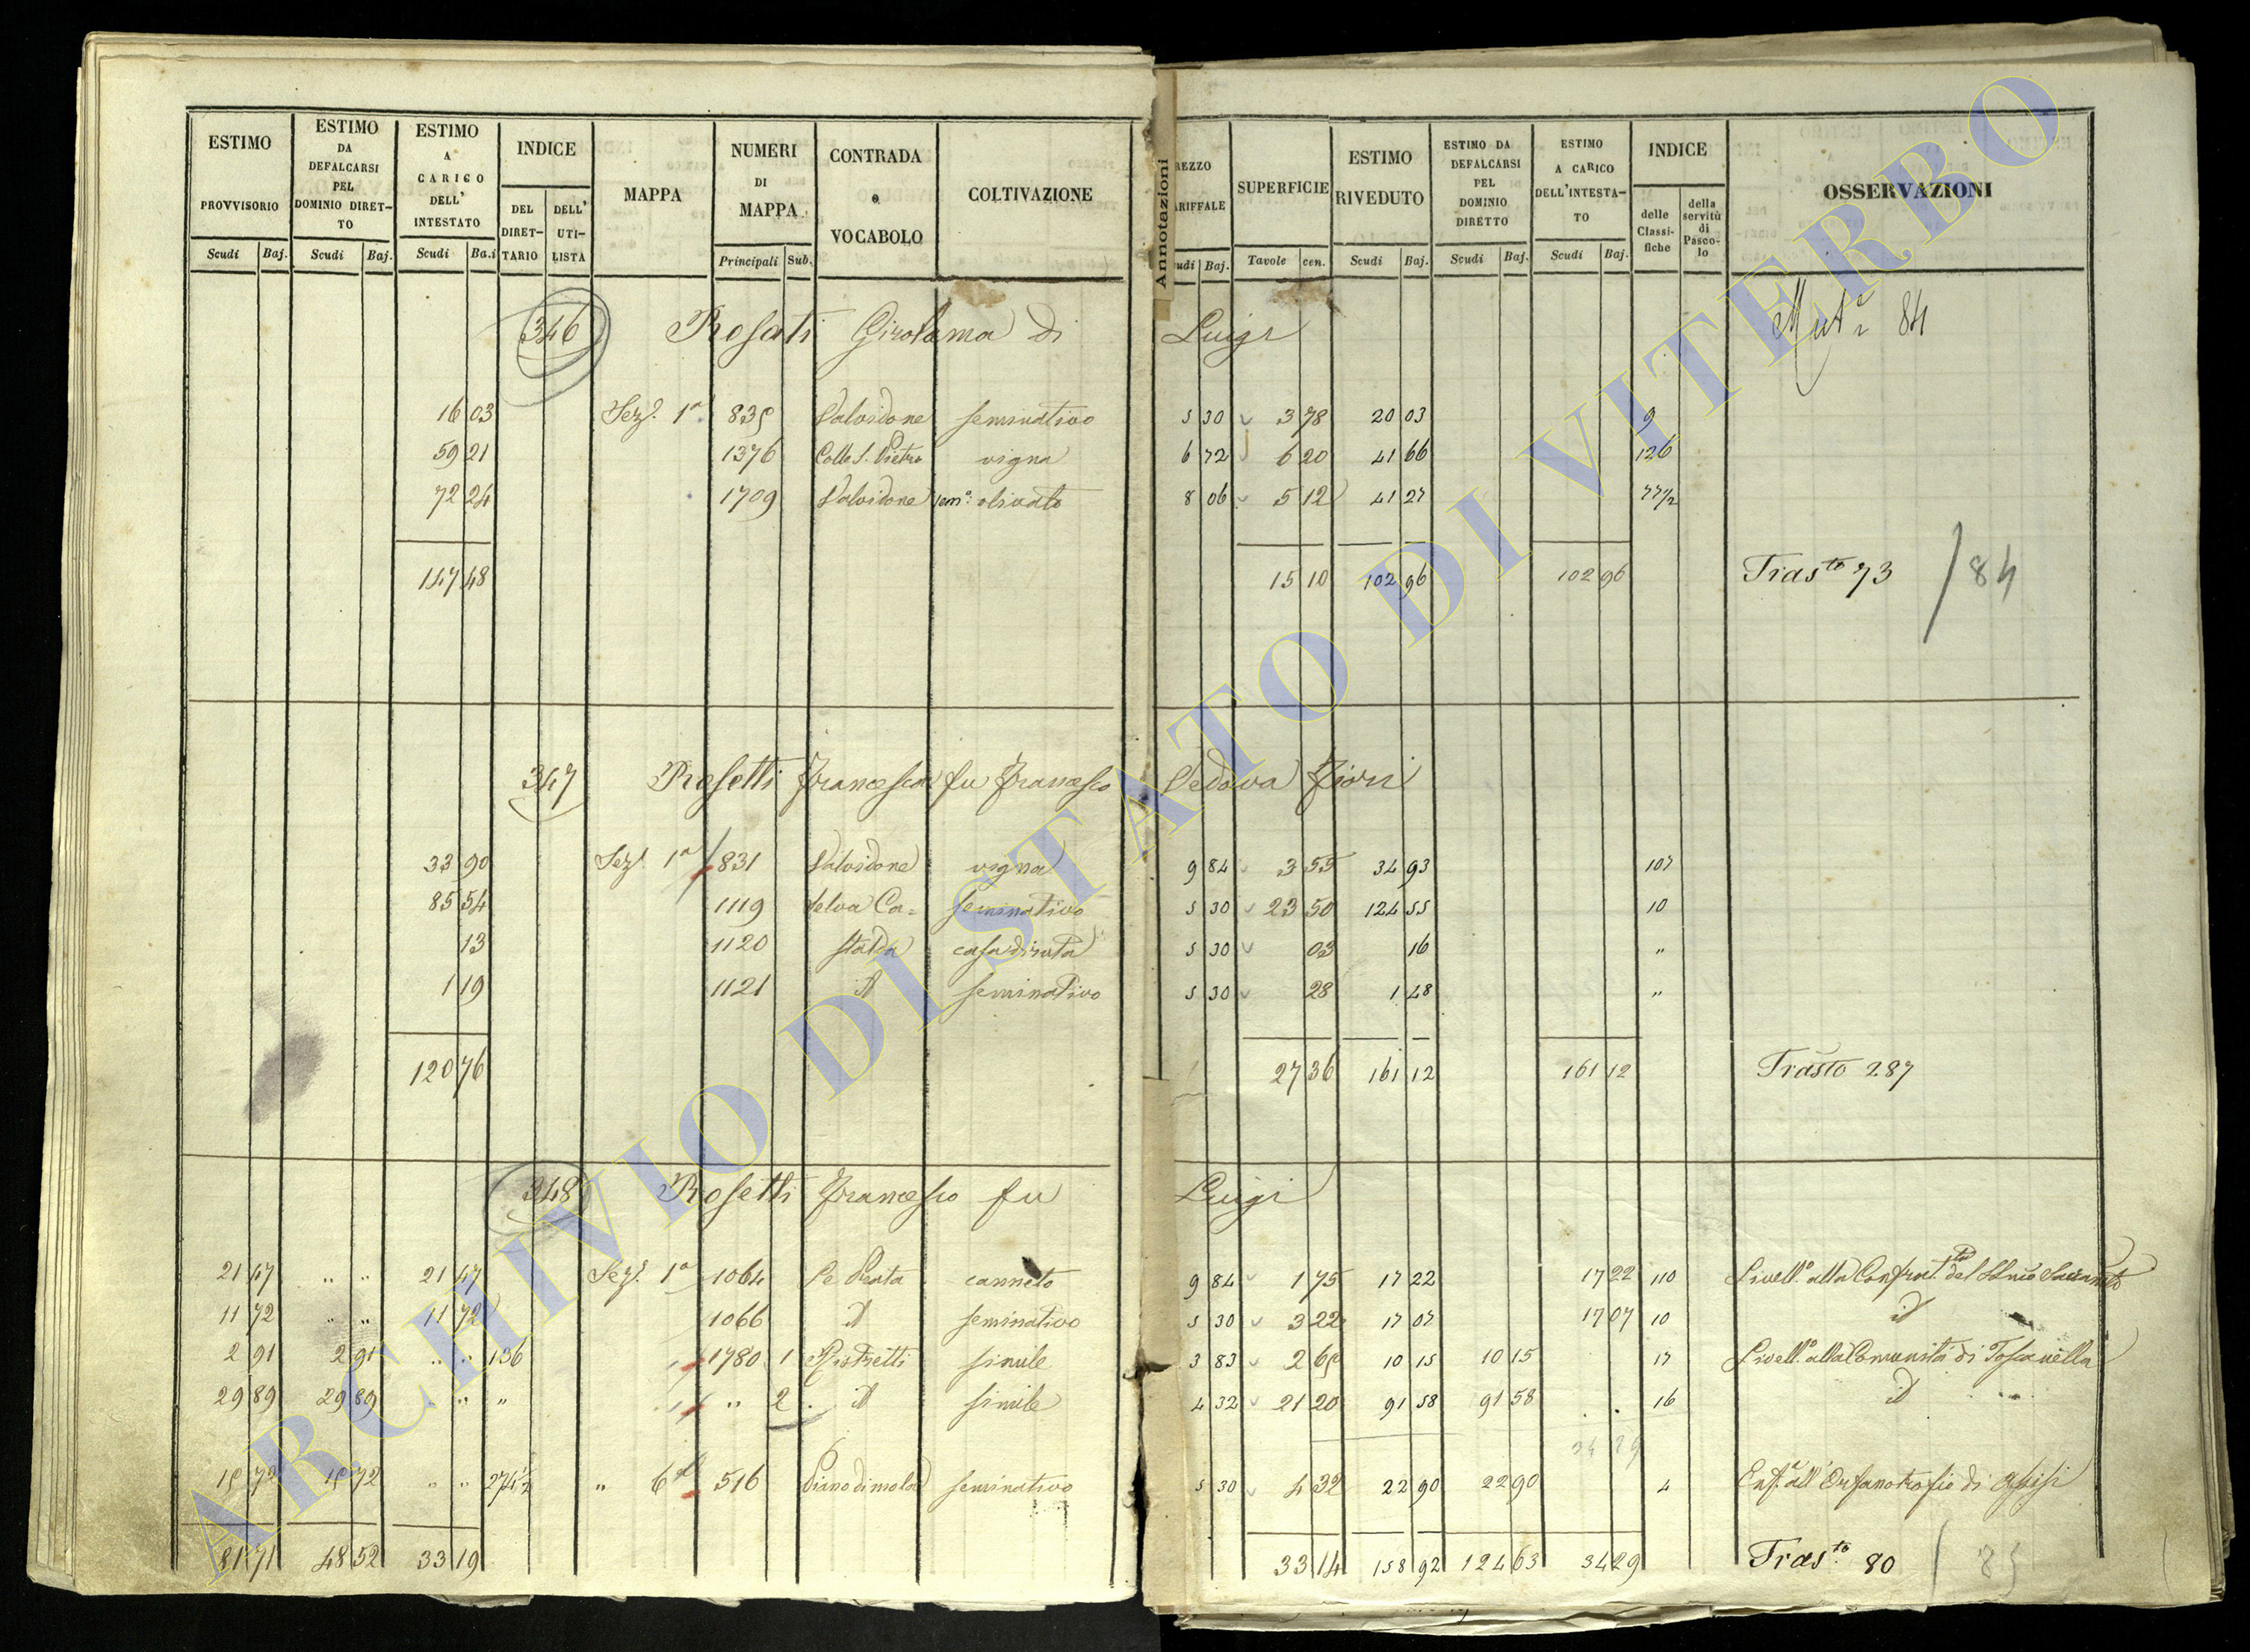 ESTIMO PROVVISORIO Scudi Baj.
ESTIMO DA DEFALCARSI PEL DOMINIO DIRET-TO Scudi Baj.
ESTIMO A CARICO DELL' INTESTATO Scudi Ba.i
INDICE DEL DIRET-TARIO DELL' UTI-LISTA
MAPPA
NUMERI DI MAPPA Principali Sub.
CONTRADA o VOCABOLO
COLTIVAZIONE
Annotazioni
REZZO ARIFFALE udi Baj.
SUPERFICIE Tavole cen.
ESTIMO RIVEDUTO Scudi Baj.
ESTIMO DA DEFALCARSI PEL DOMINIO DIRETTO Scudi Baj.
ESTIMO A CARICO DELL'INTESTA-TO Scudi Baj.
INDICE delle Classi-fiche della servitù di Pasco-lo
OSSERVAZIONI
346 Rosati Girolama di Luigi 84
16 03 Sez.e 1a 835 Valvidone seminativo 5 30 3 78 20 03 9
59 21 1376 Colle S. Pietro vigna 6 72 6 20 41 66 126
72 24 1709 Valvidone sem.o olivato 8 06 5 12 41 27 77 1/2
147 48 15 10 102 96 102 96 Tras.to 73 / 84
347 Rosetti Francesca fu Francesco Vedova Fiori
33 90 Sez.e 1a 831 Valvidone vigna 9 84 3 55 34 93 107
85 54 1119 Selva Ca= seminativo 5 30 23 50 124 55 10
13 1120 stalda casa diruta 5 30 03 16 "
1 19 1121 id seminativo 5 30 28 1 48 "
120 76 27 36 161 12 161 12 Trasto 287
348 Rosetti Francesco fu Luigi
21 47 " " 21 47 Sez.e 1a 1064 canneto 9 84 1 75 17 22 17 22 110 Livell.o alla Confrat.ta del SSmo Sacramto
11 72 " " 11 72 1066 id seminativo 5 30 3 22 17 07 17 07 10 id
2 91 2 91 " " 136 1780 1 Ristretti simile 3 83 2 65 10 15 10 15 17 Livell.o alla Comunità di Toscanella
29 89 29 89 " " " " 2 id simile 4 32 21 20 91 58 91 58 16 id
34 29
15 72 15 72 " " 274 1/2 " 6a 516 Piano di mola seminativo 5 30 4 32 22 90 22 90 4 Enf.a all'Orfanotrofio di Assisi
81 71 48 52 33 19 33 14 158 92 124 63 34 29 Tras.to 80 / 85
ARCHIVIO DI STATO DI VITERBO